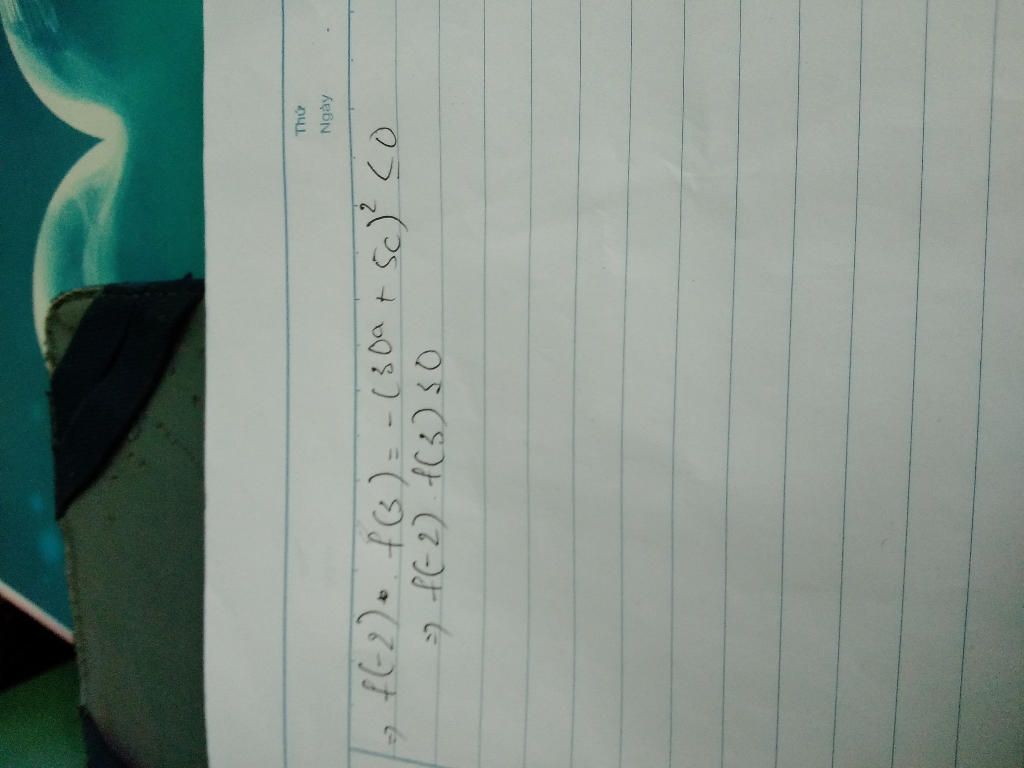 Thứ
Ngày
=> f(-2) . f(3) = - (30a + 5c)² ≤ 0
=> f(-2) . f(3) ≤ 0